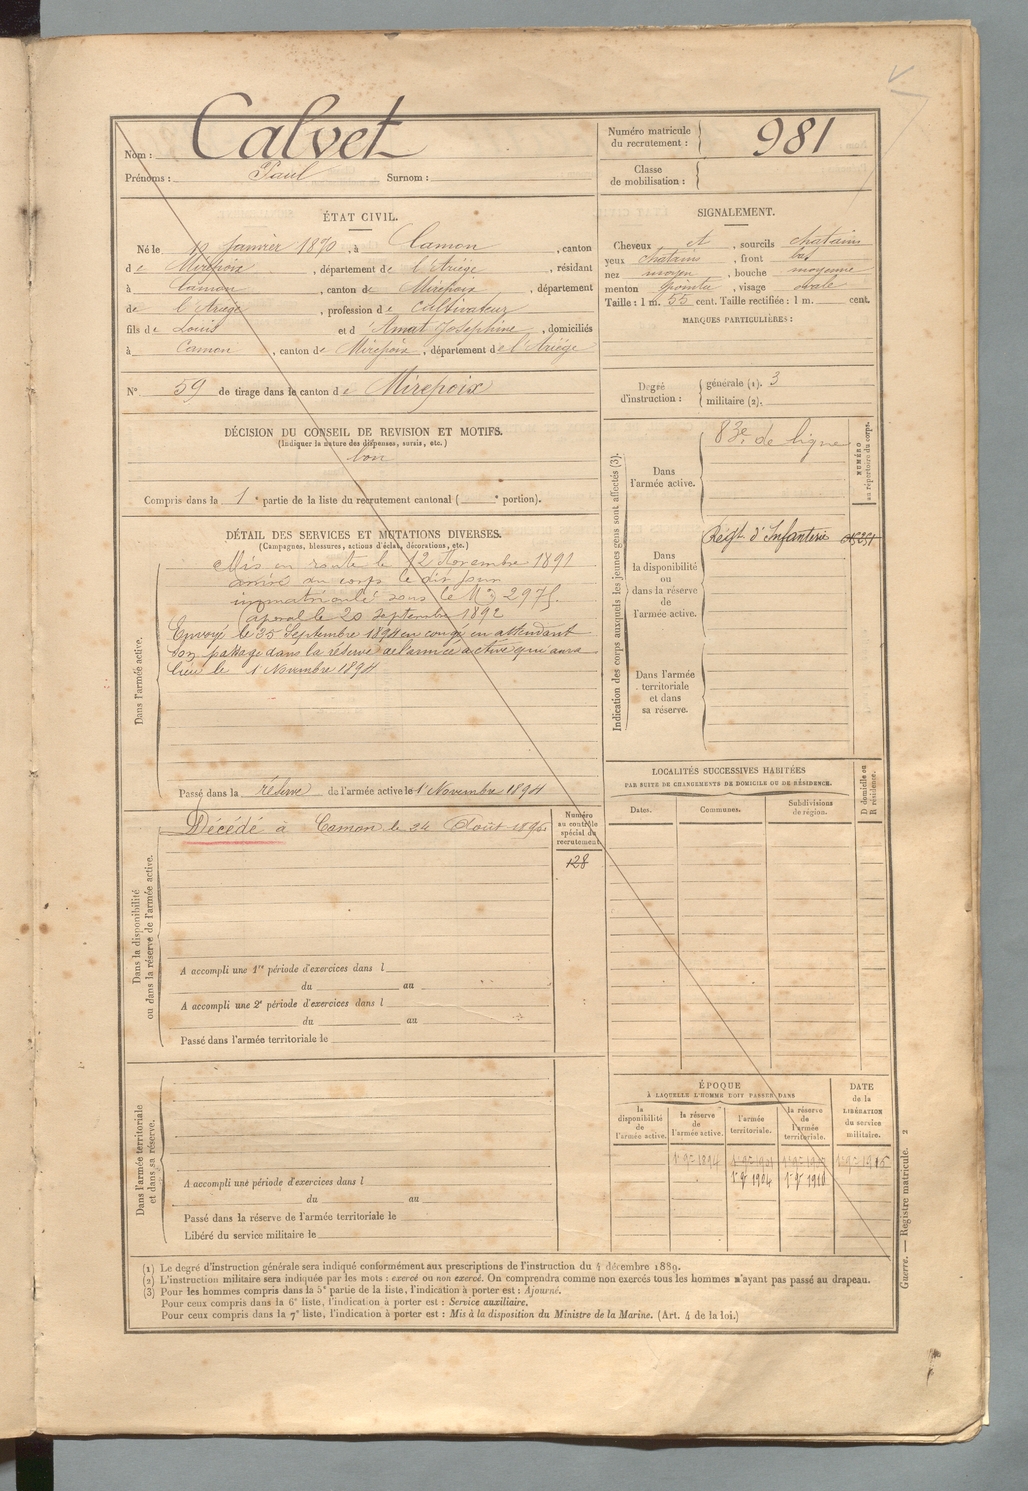 Nom : Calvet
Prénoms : Paul Surnom :
Numéro matricule du recrutement : 981
Classe de mobilisation :
ÉTAT CIVIL.
Né le janvier 1870, à Camon, canton
de Mirepoix, département de l'Ariège, résidant
à Camon, canton de Mirepoix, département
de l'Ariège, profession de Cultivateur
fils de Louis et d'Amat Joséphine, domiciliés
à Camon, canton de Mirepoix, département de l'Ariège
N° 59 de tirage dans le canton de Mirepoix
DÉCISION DU CONSEIL DE REVISION ET MOTIFS.
(Indiquer la nature des dispenses, sursis, etc.)
bon
Compris dans la 1e partie de la liste du recrutement cantonal ( e portion).
SIGNALEMENT.
Cheveux et, sourcils chatains
yeux chatains, front bas
nez moyen, bouche moyenne
menton pointu, visage ovale
Taille : 1 m. 55 cent. Taille rectifiée : 1 m. cent.
MARQUES PARTICULIÈRES :
Degré d'instruction : générale (1). 3
militaire (2).
DÉTAIL DES SERVICES ET MUTATIONS DIVERSES.
(Campagnes, blessures, actions d'éclat, décorations, etc.)
Dans l'armée active.
Mis en route le 12 Novembre 1891
arrivé au corps le dit jour
immatriculé sous le N° 2975.
Caporal le 20 septembre 1892
Envoyé le Septembre 1894 en congé en attendant
son passage dans la réserve de l'armée active qui aura
lieu le 1 Novembre 1894
Passé dans la réserve de l'armée active le 1 Novembre 1894
Indication des corps auxquels les jeunes gens sont affectés (3).
NUMÉRO au répertoire du corps.
Dans l'armée active.
83e de ligne
Dans la disponibilité ou dans la réserve de l'armée active.
Régt d'Infanterie
Dans l'armée territoriale et dans sa réserve.
Dans la disponibilité ou dans la réserve de l'armée active.
Décédé à Camon le 24 Août 1896
Numéro au contrôle spécial du recrutement
128
A accompli une 1re période d'exercices dans l
du au
A accompli une 2e période d'exercices dans l
du au
Passé dans l'armée territoriale le
LOCALITÉS SUCCESSIVES HABITÉES
PAR SUITE DE CHANGEMENTS DE DOMICILE OU DE RÉSIDENCE.
D domicile ou R résidence.
Dates. Communes. Subdivisions de région.
Dans l'armée territoriale et dans sa réserve.
A accompli une période d'exercices dans l
du au
Passé dans la réserve de l'armée territoriale le
Libéré du service militaire le
ÉPOQUE
À LAQUELLE L'HOMME DOIT PASSER DANS
la disponibilité de l'armée active.
la réserve de l'armée active.
l'armée territoriale.
la réserve de l'armée territoriale.
DATE de la LIBÉRATION du service militaire.
(1) Le degré d'instruction générale sera indiqué conformément aux prescriptions de l'instruction du 4 décembre 1889.
(2) L'instruction militaire sera indiquée par les mots : exercé ou non exercé. On comprendra comme non exercés tous les hommes n'ayant pas passé au drapeau.
(3) Pour les hommes compris dans la 5e partie de la liste, l'indication à porter est : Ajourné.
Pour ceux compris dans la 6e liste, l'indication à porter est : Service auxiliaire.
Pour ceux compris dans la 7e liste, l'indication à porter est : Mis à la disposition du Ministre de la Marine. (Art. 4 de la loi.)
Guerre. — Registre matricule. 2